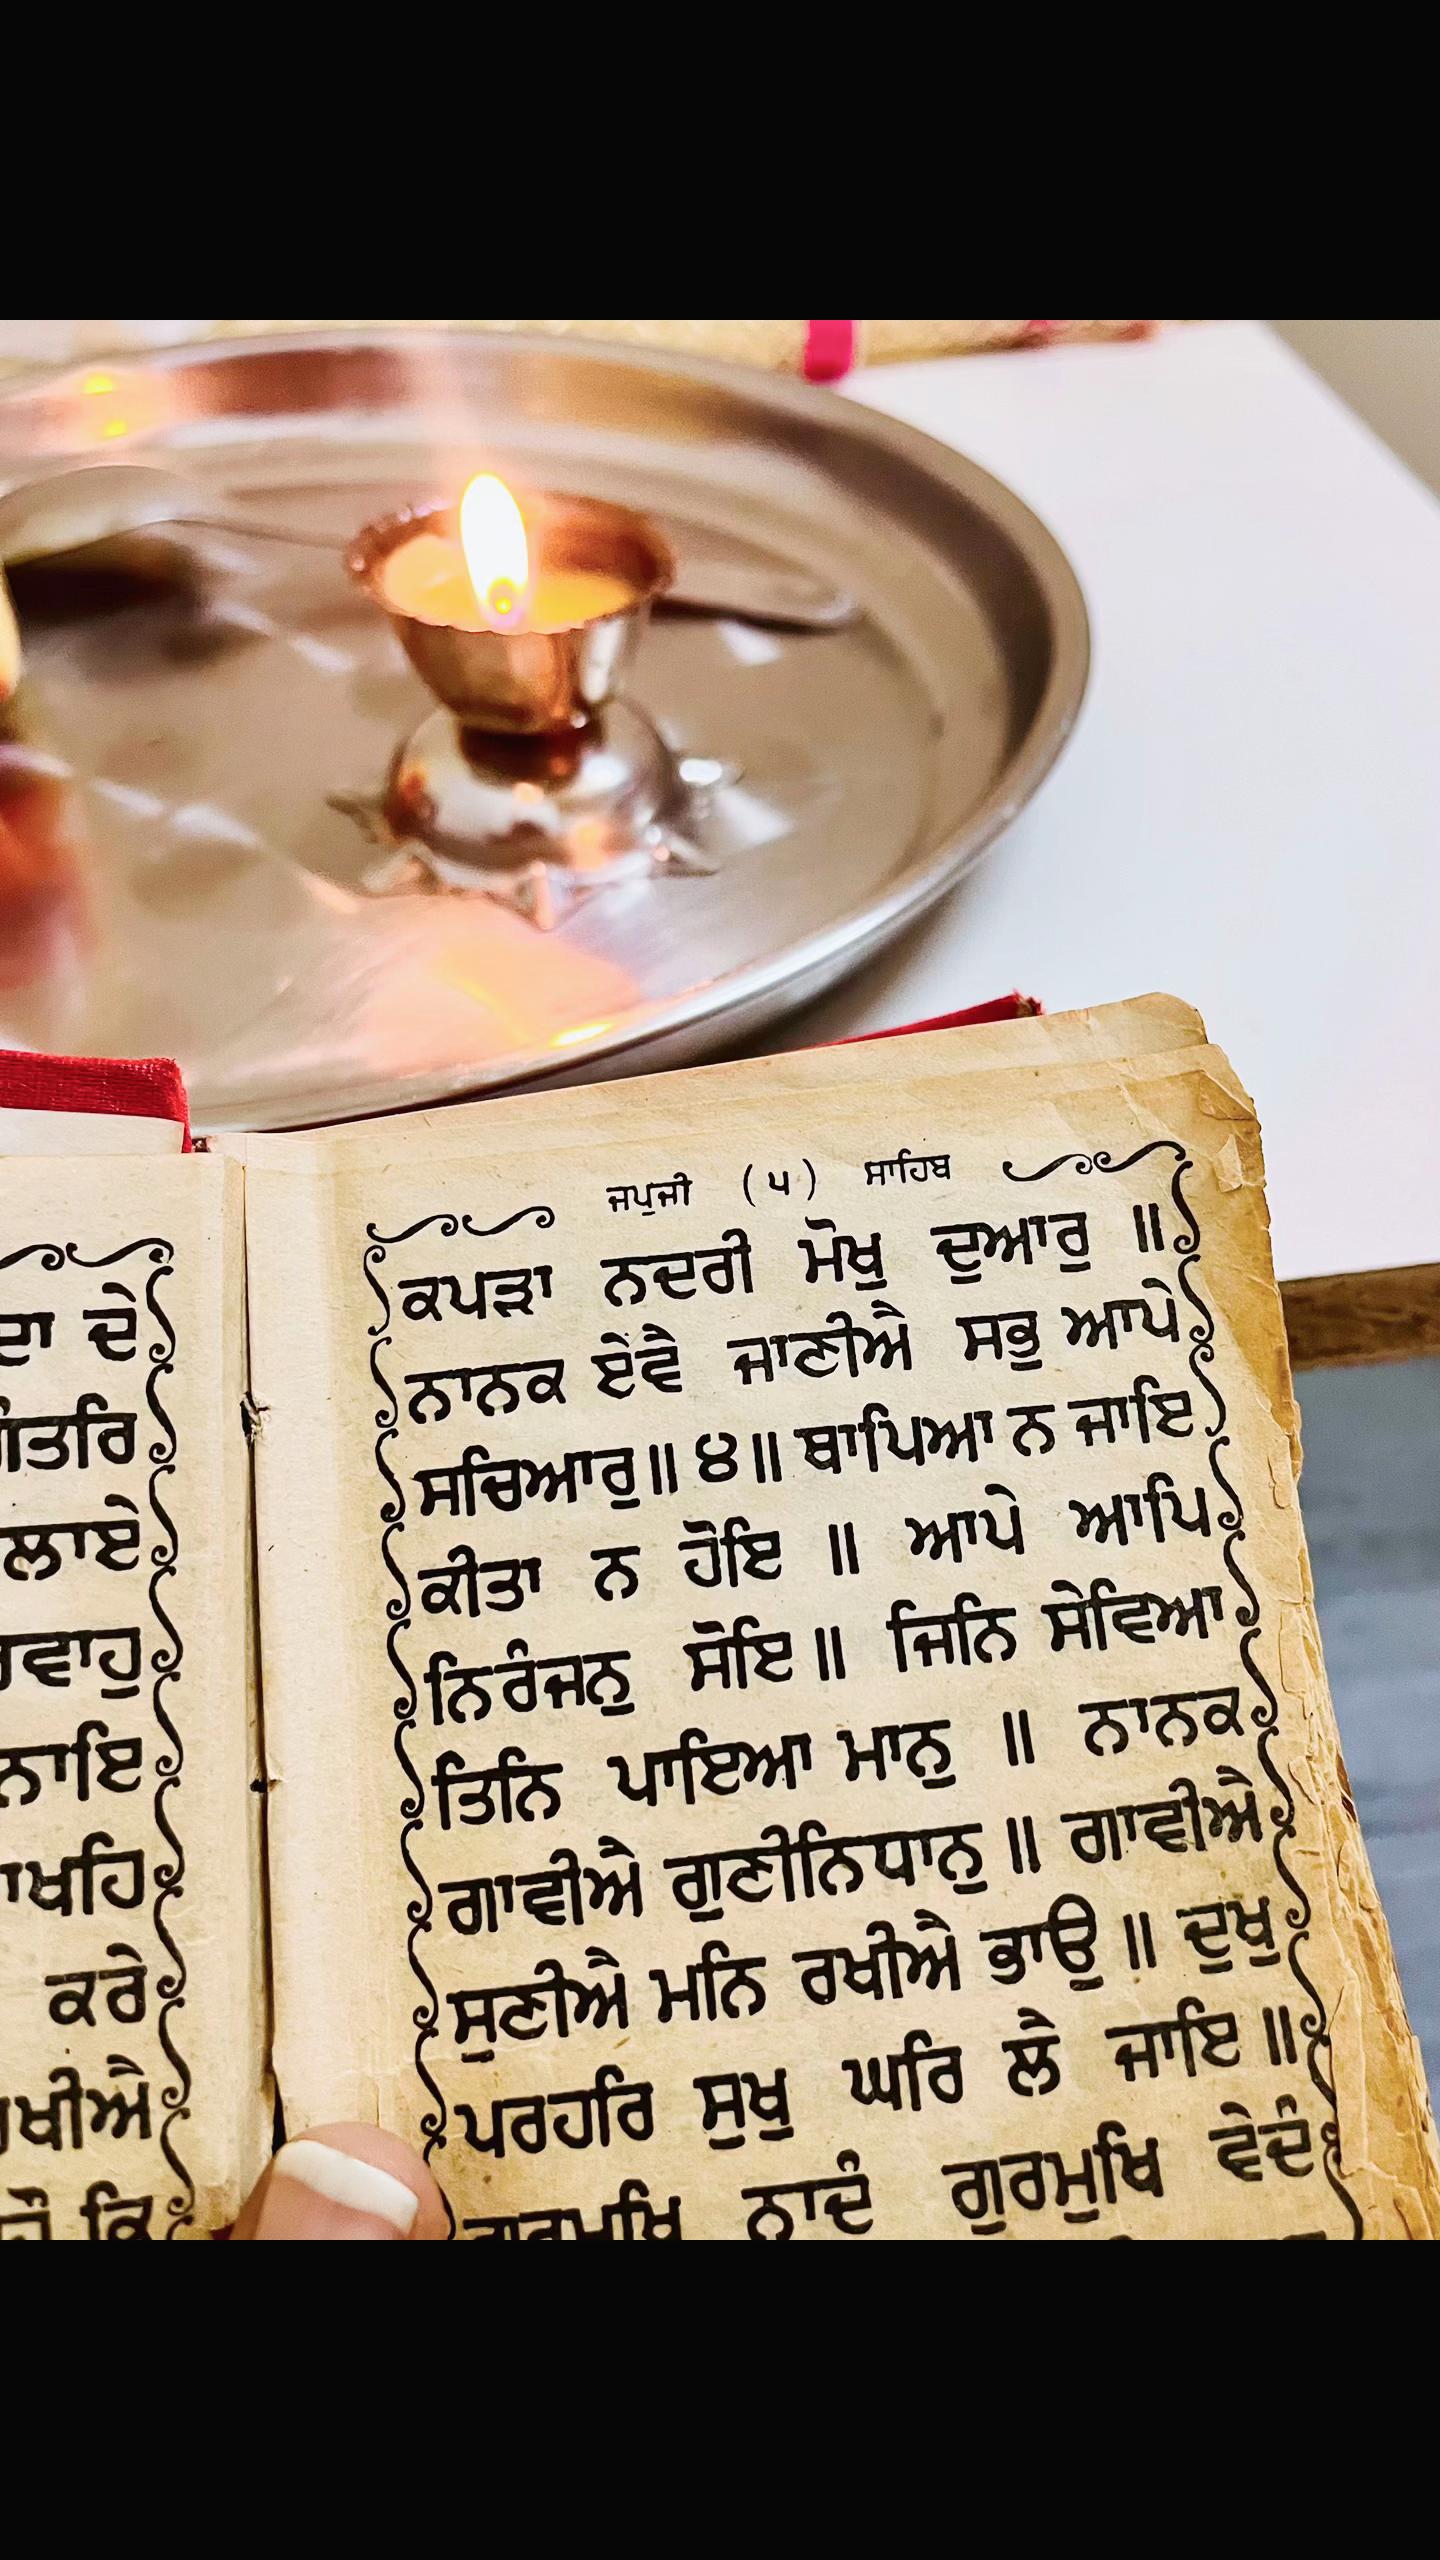 ਦਾ ਦੇ
ਲਾਏ
ਕਰੇ
ਜਪੁਜੀ (੫) ਸਾਹਿਬ
ਕਪੜਾ ਨਦਰੀ ਮੋਖੁ ਦੁਆਰੁ ॥
ਨਾਨਕ ਏਵੈ ਜਾਣੀਐ ਸਭੁ ਆਪੇ
ਸਚਿਆਰੁ॥ ੪॥ ਥਾਪਿਆ ਨ ਜਾਇ
ਕੀਤਾ ਨ ਹੋਇ ॥ ਆਪੇ ਆਪਿ
ਨਿਰੰਜਨੁ ਸੋਇ॥ ਜਿਨਿ ਸੇਵਿਆ
ਤਿਨਿ ਪਾਇਆ ਮਾਨੁ ॥ ਨਾਨਕ
ਗਾਵੀਐ ਗੁਣੀਨਿਧਾਨੁ॥ ਗਾਵੀਐ
ਸੁਣੀਐ ਮਨਿ ਰਖੀਐ ਭਾਉ॥ ਦੁਖੁ
ਪਰਹਰਿ ਸੁਖੁ ਘਰਿ ਲੈ ਜਾਇ॥
ਗੁਰਮੁਖਿ ਨਾਦੰ ਗੁਰਮੁਖਿ ਵੇਦੰ